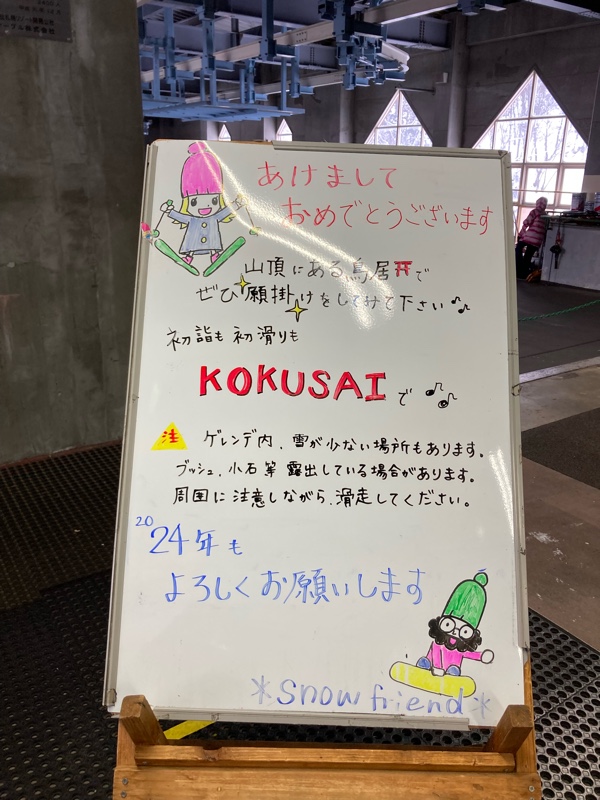 あけまして
おめでとうございます
山頂にある鳥居⛩で
ぜひ願掛けをしてみて下さい♪♪
初詣も初滑りも
KOKUSAIで♪♪
注 ゲレンデ内、雪が少ない場所もあります。
ブッシュ、小石等露出している場合があります。
周囲に注意しながら、滑走してください。
2024年も
よろしくお願いします
*Snow friend*